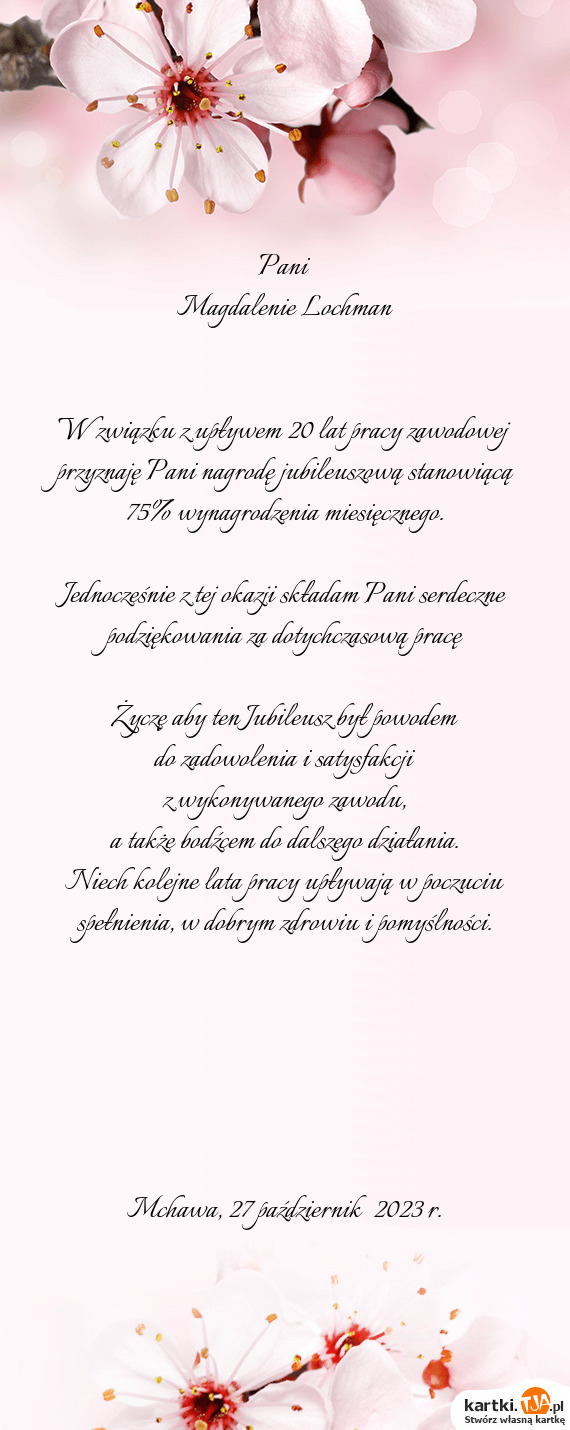 Pani
Magdalenie Lochman
W związku z upływem 20 lat pracy zawodowej
przyznaję Pani nagrodę jubileuszową stanowiącą
75% wynagrodzenia miesięcznego.
Jednocześnie z tej okazji składam Pani serdeczne
podziękowania za dotychczasową pracę
Życzę aby ten Jubileusz był powodem
do zadowolenia i satysfakcji
z wykonywanego zawodu,
a także bodźcem do dalszego działania.
Niech kolejne lata pracy upływają w poczuciu
spełnienia, w dobrym zdrowiu i pomyślności.
Mchawa, 27 październik 2023 r.
kartki.TJA.pl
Stwórz własną kartkę